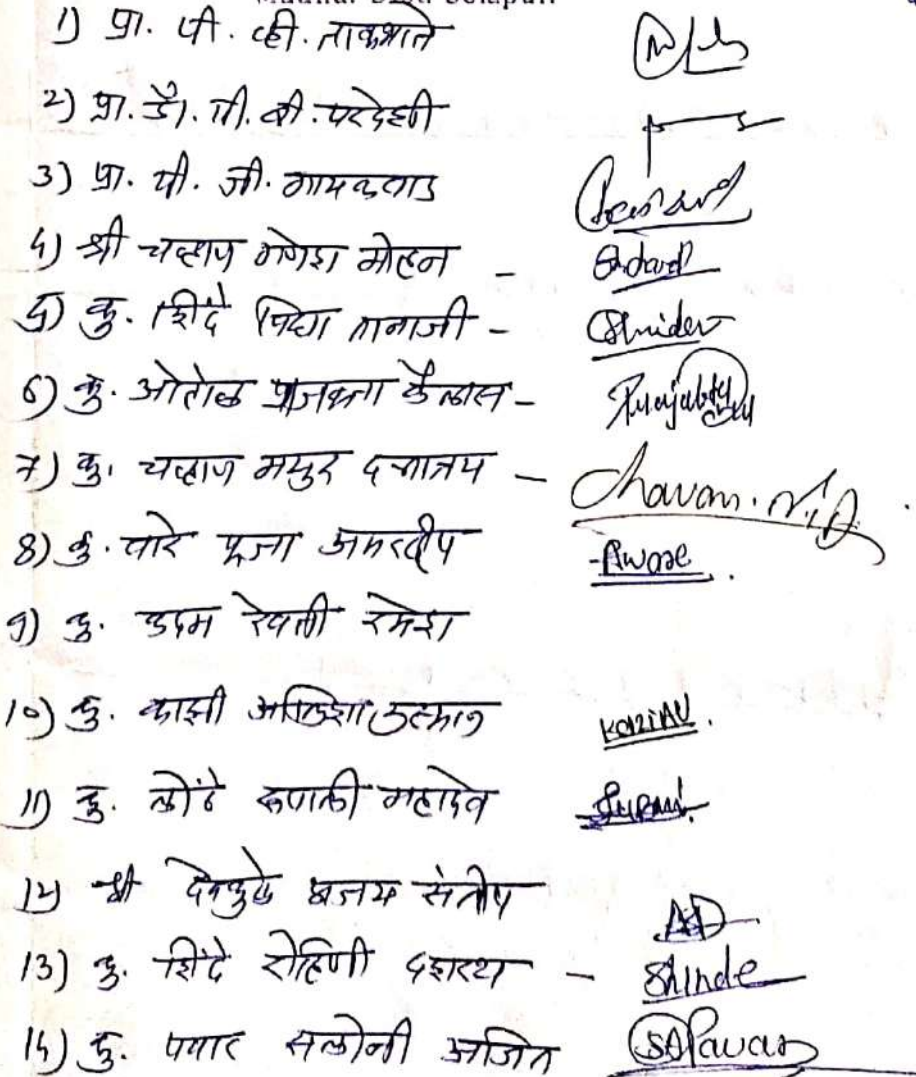 1) प्रा. पी. व्ही. ताकभाते
2) प्रा. डॉ. सी. बी. परदेशी
3) प्रा. पी. जी. गायकवाड
4) श्री चव्हाण गणेश मोहन -
5) कु. शिंदे विद्या तानाजी - Shinde
6) कु. ओहोळ प्राजक्ता कैलास -
7) कु. चव्हाण मयुर दत्तात्रय - Chavan. M.D
8) कु. वारे पूजा अमरदीप
9) कु. कदम रेवती रमेश
10) कु. काझी अलिशा उस्मान KaziAU.
11) कु. लोंढे रुपाली महादेव
12) श्री देवकुळे अजय संतोष AD
13) कु. शिंदे रोहिणी दशरथ - Shinde
14) कु. पवार सलोनी अजित SAPawar